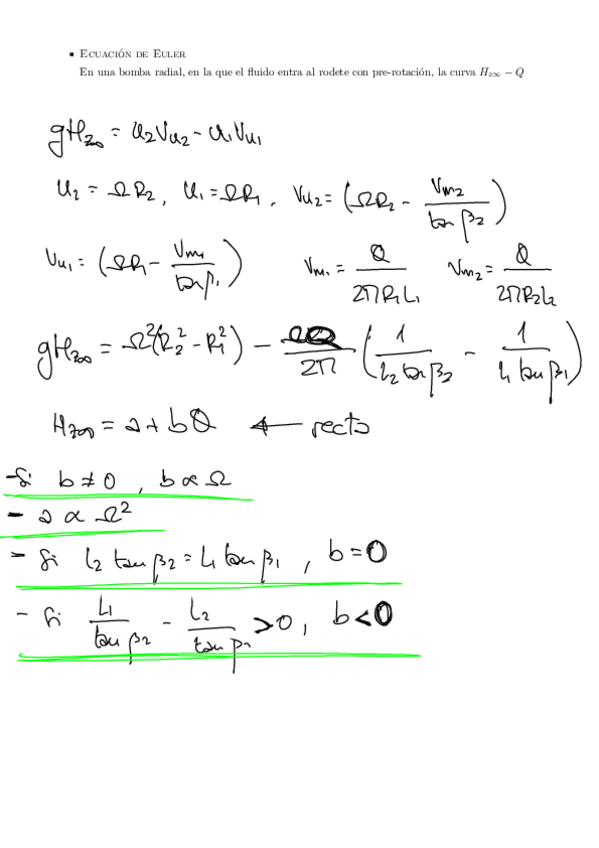 ▪ Ecuación de Euler
En una bomba radial, en la que el fluido entra al rodete con pre-rotación, la curva H_{z∞} − Q
gH_{z∞} = u₂V_{u2} - u₁V_{u1}
u₂ = ΩR₂, u₁ = ΩR₁, V_{u2} = (ΩR₂ - V_{m2}/tan β₂)
V_{u1} = (ΩR₁ - V_{m1}/tan β₁) V_{m1} = Q/2πR₁L₁ V_{m2} = Q/2πR₂L₂
gH_{z∞} = Ω²(R₂² - R₁²) - ΩQ/2π (1/L₂ tan β₂ - 1/L₁ tan β₁)
H_{z∞} = a + bQ ← recta
- Si b ≠ 0, b ∝ Ω
- a ∝ Ω²
- Si L₂ tan β₂ = L₁ tan β₁, b = 0
- Si L₁/tan β₂ - L₂/tan β₁ > 0, b < 0